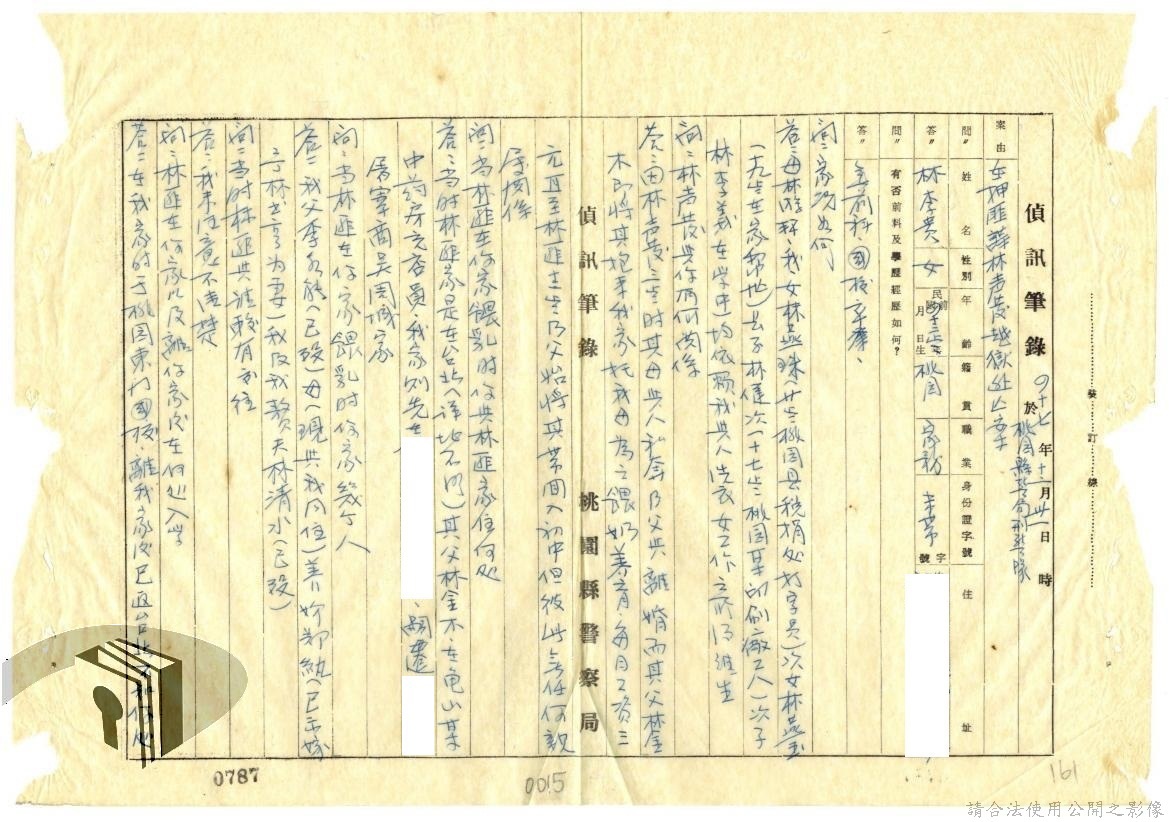 裝 訂 線
偵訊筆錄 於 四十七年十二月卅一日 時
桃園縣警局刑警隊
案由 在押匪諜林声發越獄逃亡案
問〃 姓名 性別 年齡 籍貫 職業 身份證字號 住址
答〃 林李英 女 民前國 年 月 日生 桃園 家務 未帶 字 號
問〃 有否前科及學歷經歷如何?
答〃 無前科、國校卒業、
問:家況如何
答:母林 、我女林燕珠(廿二 桃園县稅捐处打字員)次女林燕
(一九 在家幫忙)長子林健次(十七 桃園某印刷廠工人)次子
林李義在學中)均依賴我與人洗衣女工作之所得維生
問:林声發與你有何関係
答:因林声發二 时其母與人私奔乃父與離婚而其父林金
木即將其抱來我家託我母為之餵奶養育、每月工資三
元直至林匪 乃父始將其帶回入初中但彼此無任何親
屬関係
偵訊筆錄 桃園縣警察局
問:当林匪在你家餵乳时你與林匪家住何处
答:当时林匪家是在台北(詳地不明)其父林金木在龜山某
中药房充店員、我家則先在
嗣遷
居 吳園城家
問:当林匪在你家餵乳时你家幾个人
答:我父李 (已歿)母(現與我同住)養 (已
予林 為妻)我及我 夫林清水(已歿)
問:当时林匪與誰較有來往
答:我未注意不清楚
問:林匪在你家以及離你家後在何处入学
答:在我家时于桃園東门國校、離我家後已返台北不知何处
0787
0015
161
請合法使用公開之影像